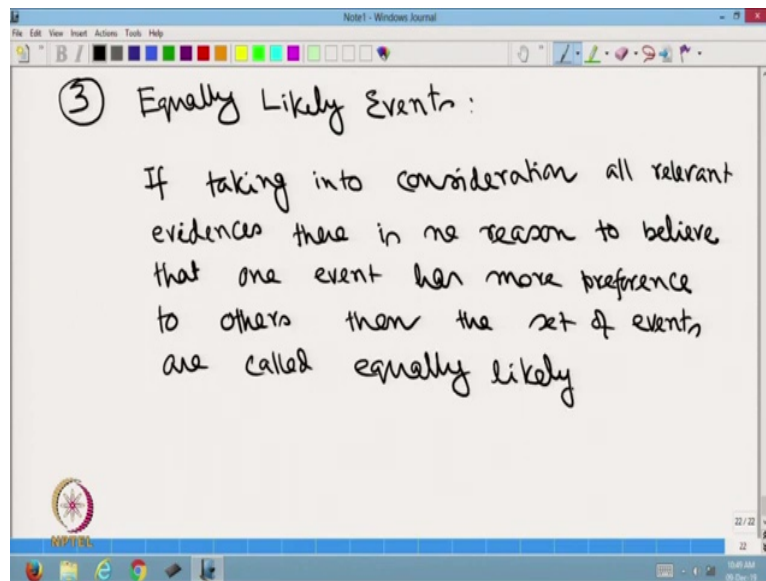 Note1 - Windows Journal
File Edit View Insert Actions Tools Help
B I
③ Equally Likely Events :
If taking into consideration all relevant
evidences there is no reason to believe
that one event has more preference
to others then the set of events
are called equally likely
NPTEL
22 / 22
22
10:49 AM